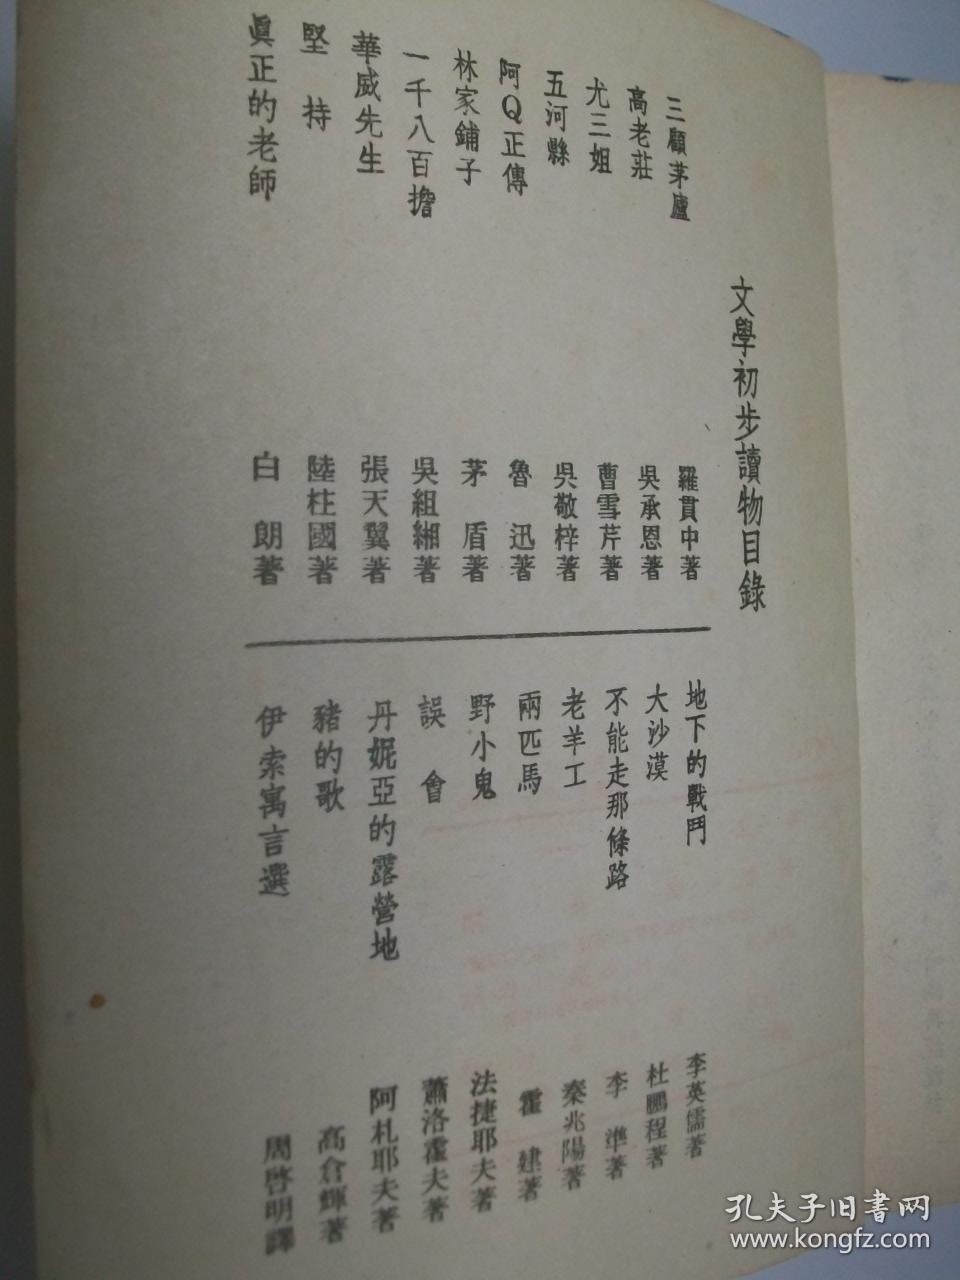 文學初步讀物目錄
三顧茅廬 羅貫中著
高老莊 吳承恩著
尤三姐 曹雪芹著
五河縣 吳敬梓著
阿Q正傳 魯迅著
林家鋪子 茅盾著
一千八百擔 吳組緗著
華威先生 張天翼著
堅持 陸柱國著
真正的老師 白朗著
地下的戰鬥 李英儒著
大沙漠 杜鵬程著
不能走那條路 李準著
老羊工 秦兆陽著
兩匹馬 霍建著
野小鬼 法捷耶夫著
誤會 蕭洛霍夫著
丹妮亞的露營地 阿札耶夫著
豬的歌 高倉輝著
伊索寓言選 周啓明譯
孔夫子旧书网
www.kongfz.com